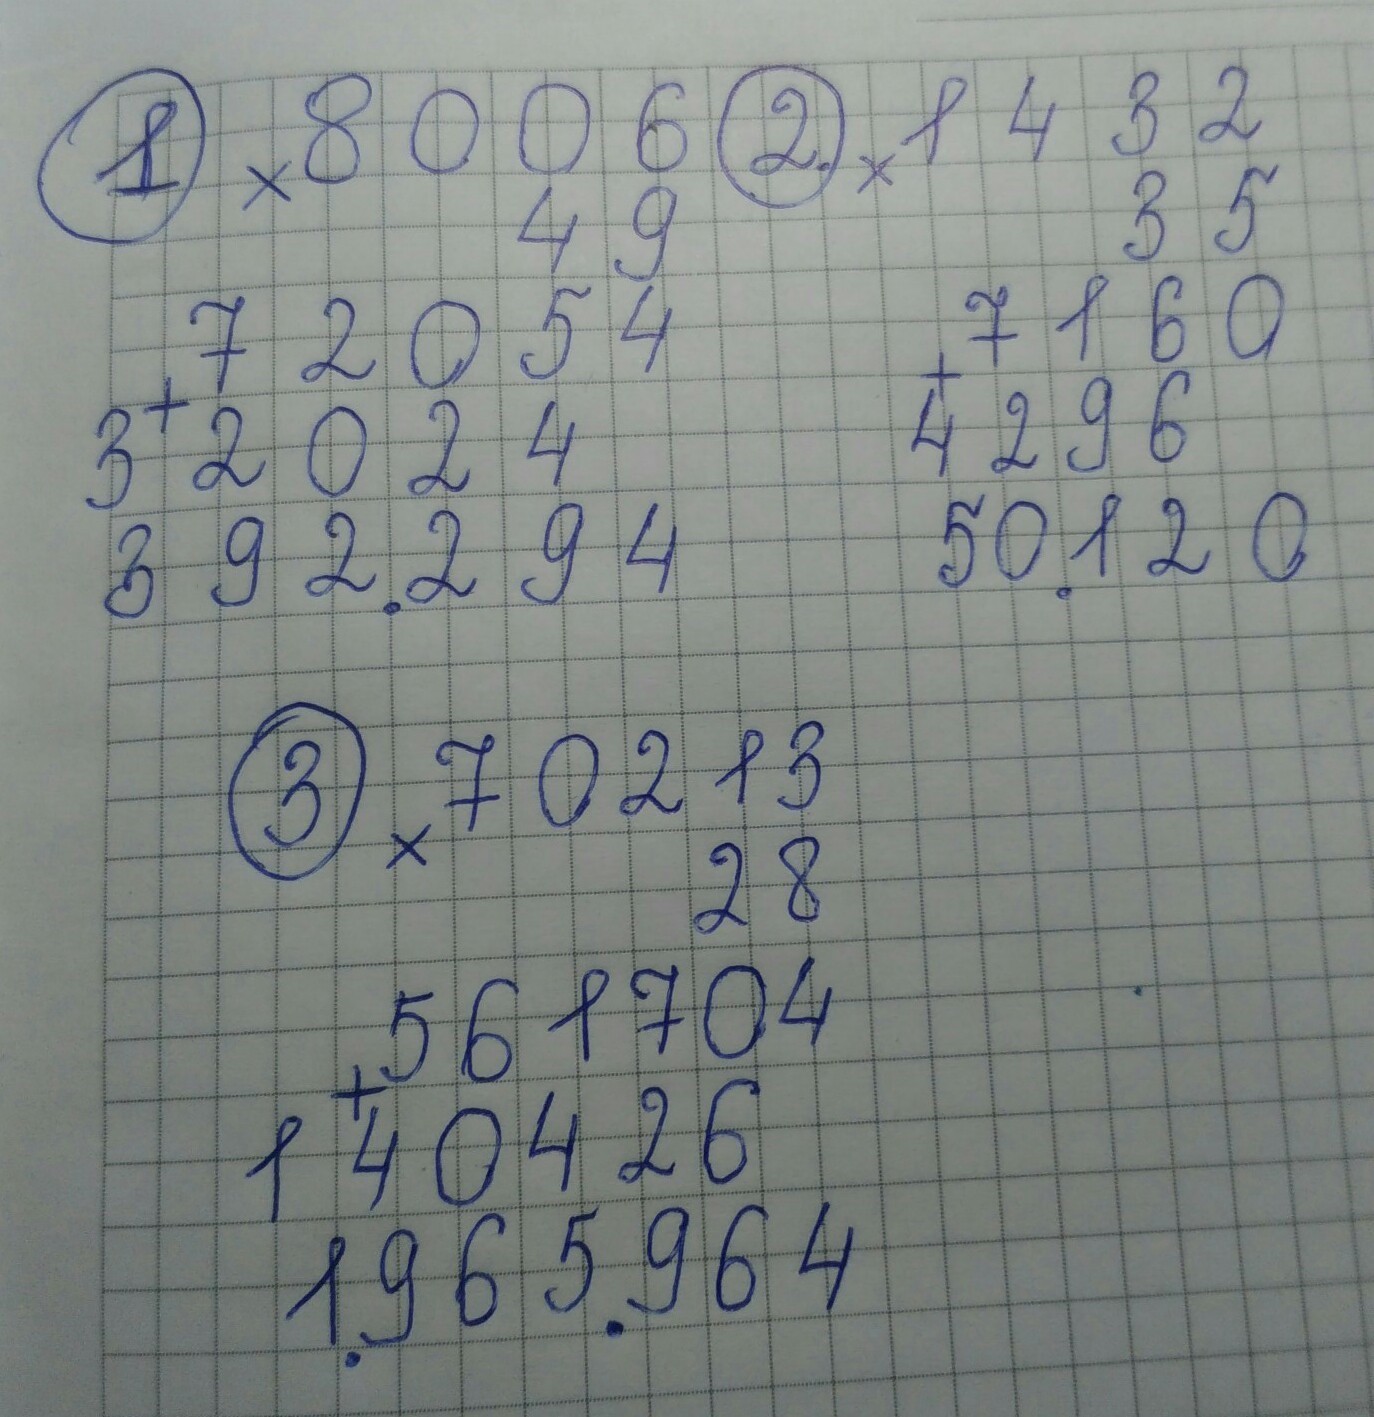 1 × 8006
49
+ 72054
32024
392.294
2. × 1432
35
+ 7160
4296
50.120
3 × 70213
28
+ 561704
140426
1.965.964